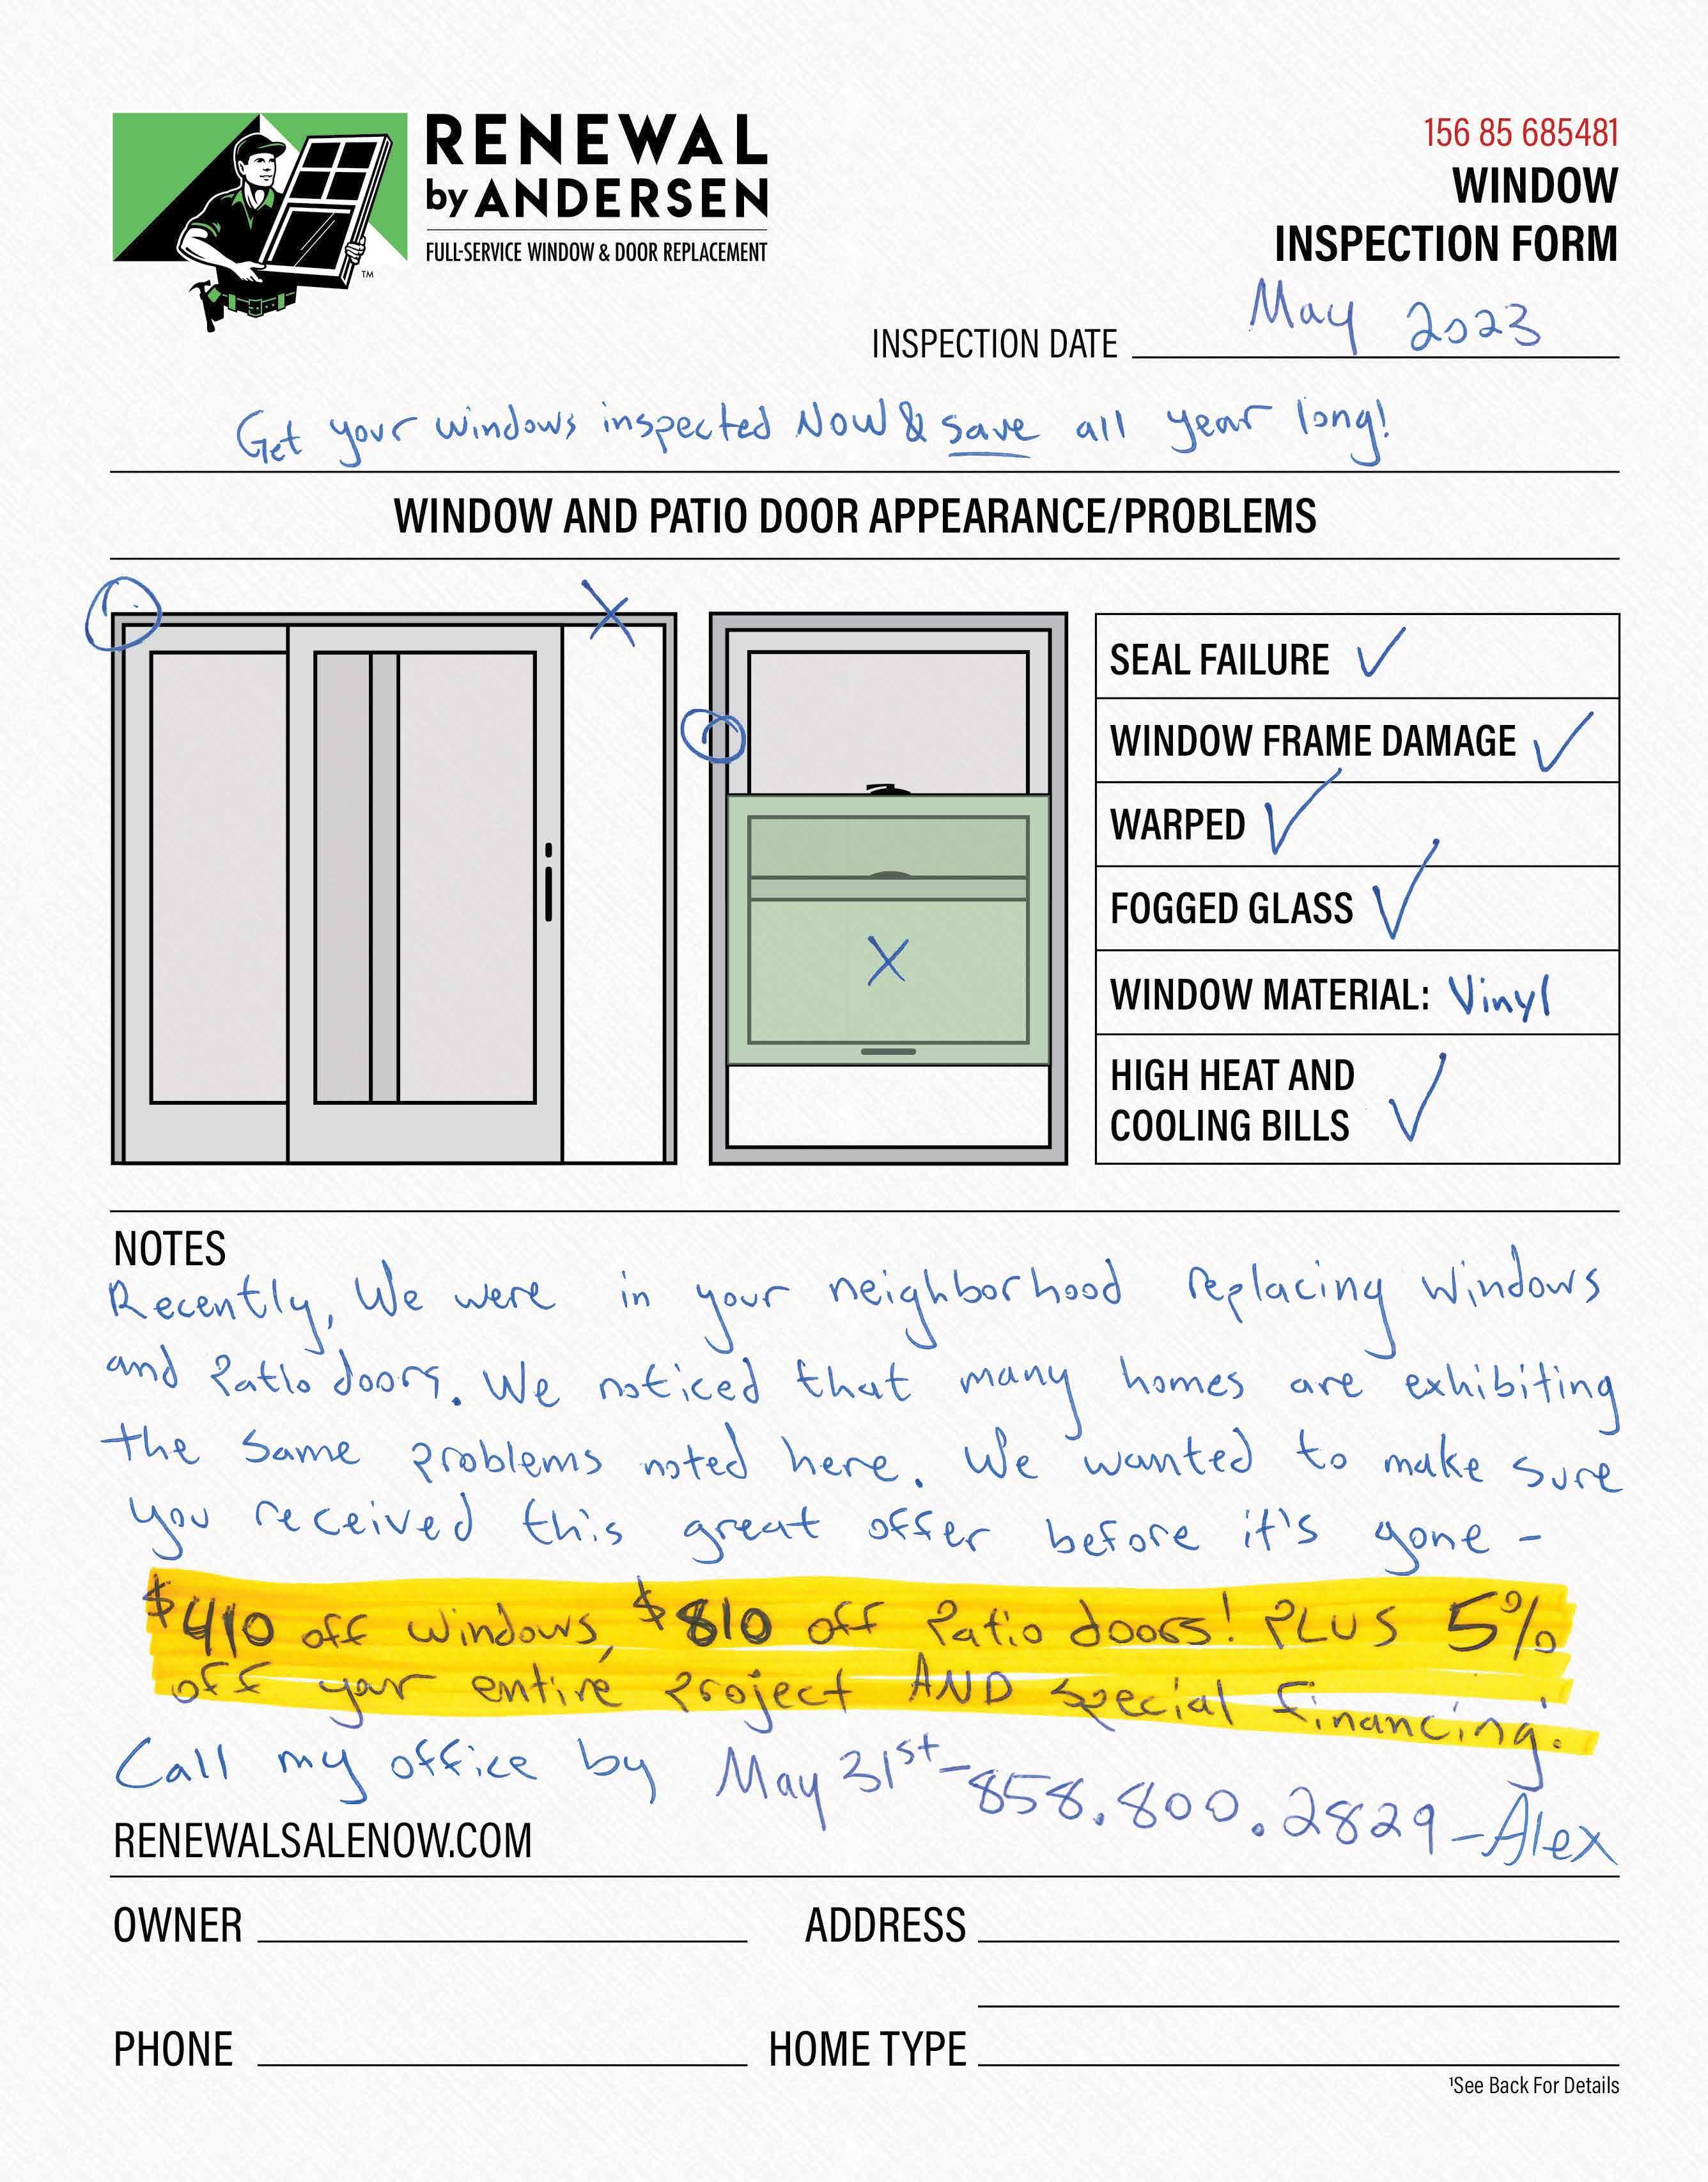 RENEWAL
by ANDERSEN
FULL-SERVICE WINDOW & DOOR REPLACEMENT
TM
156 85 685481
WINDOW
INSPECTION FORM
INSPECTION DATE May 2023
Get your windows inspected Now & save all year long!
WINDOW AND PATIO DOOR APPEARANCE/PROBLEMS
SEAL FAILURE ✓
WINDOW FRAME DAMAGE ✓
WARPED ✓
FOGGED GLASS ✓
WINDOW MATERIAL: Vinyl
HIGH HEAT AND
COOLING BILLS ✓
NOTES
Recently, We were in your neighborhood replacing windows
and Patio doors. We noticed that many homes are exhibiting
the same problems noted here. We wanted to make sure
you received this great offer before it's gone -
$410 off windows, $810 off Patio doors! PLUS 5%
off your entire project AND special financing!
Call my office by May 31st - 858.800.2829 - Alex
RENEWALSALENOW.COM
OWNER
ADDRESS
PHONE
HOME TYPE
¹See Back For Details